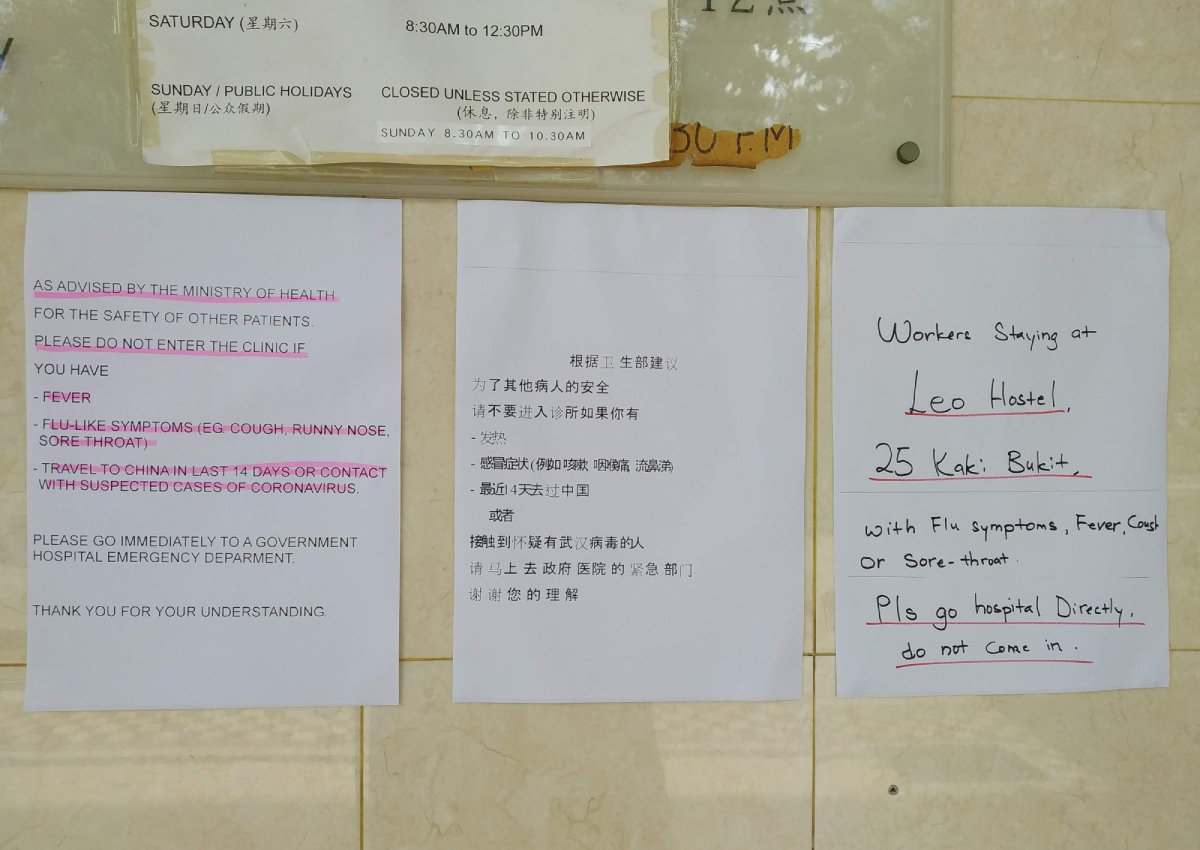 12点
SATURDAY (星期六) 8:30AM to 12:30PM
SUNDAY / PUBLIC HOLIDAYS CLOSED UNLESS STATED OTHERWISE
(星期日/公众假期) (休息，除非特别注明)
SUNDAY 8.30AM TO 10.30AM
30 P.M
AS ADVISED BY THE MINISTRY OF HEALTH
FOR THE SAFETY OF OTHER PATIENTS.
PLEASE DO NOT ENTER THE CLINIC IF
YOU HAVE
- FEVER
- FLU-LIKE SYMPTOMS (EG. COUGH, RUNNY NOSE,
SORE THROAT)
- TRAVEL TO CHINA IN LAST 14 DAYS OR CONTACT
WITH SUSPECTED CASES OF CORONAVIRUS.
PLEASE GO IMMEDIATELY TO A GOVERNMENT
HOSPITAL EMERGENCY DEPARMENT.
THANK YOU FOR YOUR UNDERSTANDING.
根据卫生部建议
为了其他病人的安全
请不要进入诊所如果你有
- 发热
- 感冒症状(例如咳嗽 咽喉痛 流鼻涕)
- 最近14天去过中国
或者
接触到怀疑有武汉病毒的人
请马上去政府医院的紧急部门
谢谢您的理解
Workers Staying at
Leo Hostel,
25 Kaki Bukit,
with Flu symptoms, Fever, Cough
or Sore-throat.
Pls go hospital Directly,
do not come in.